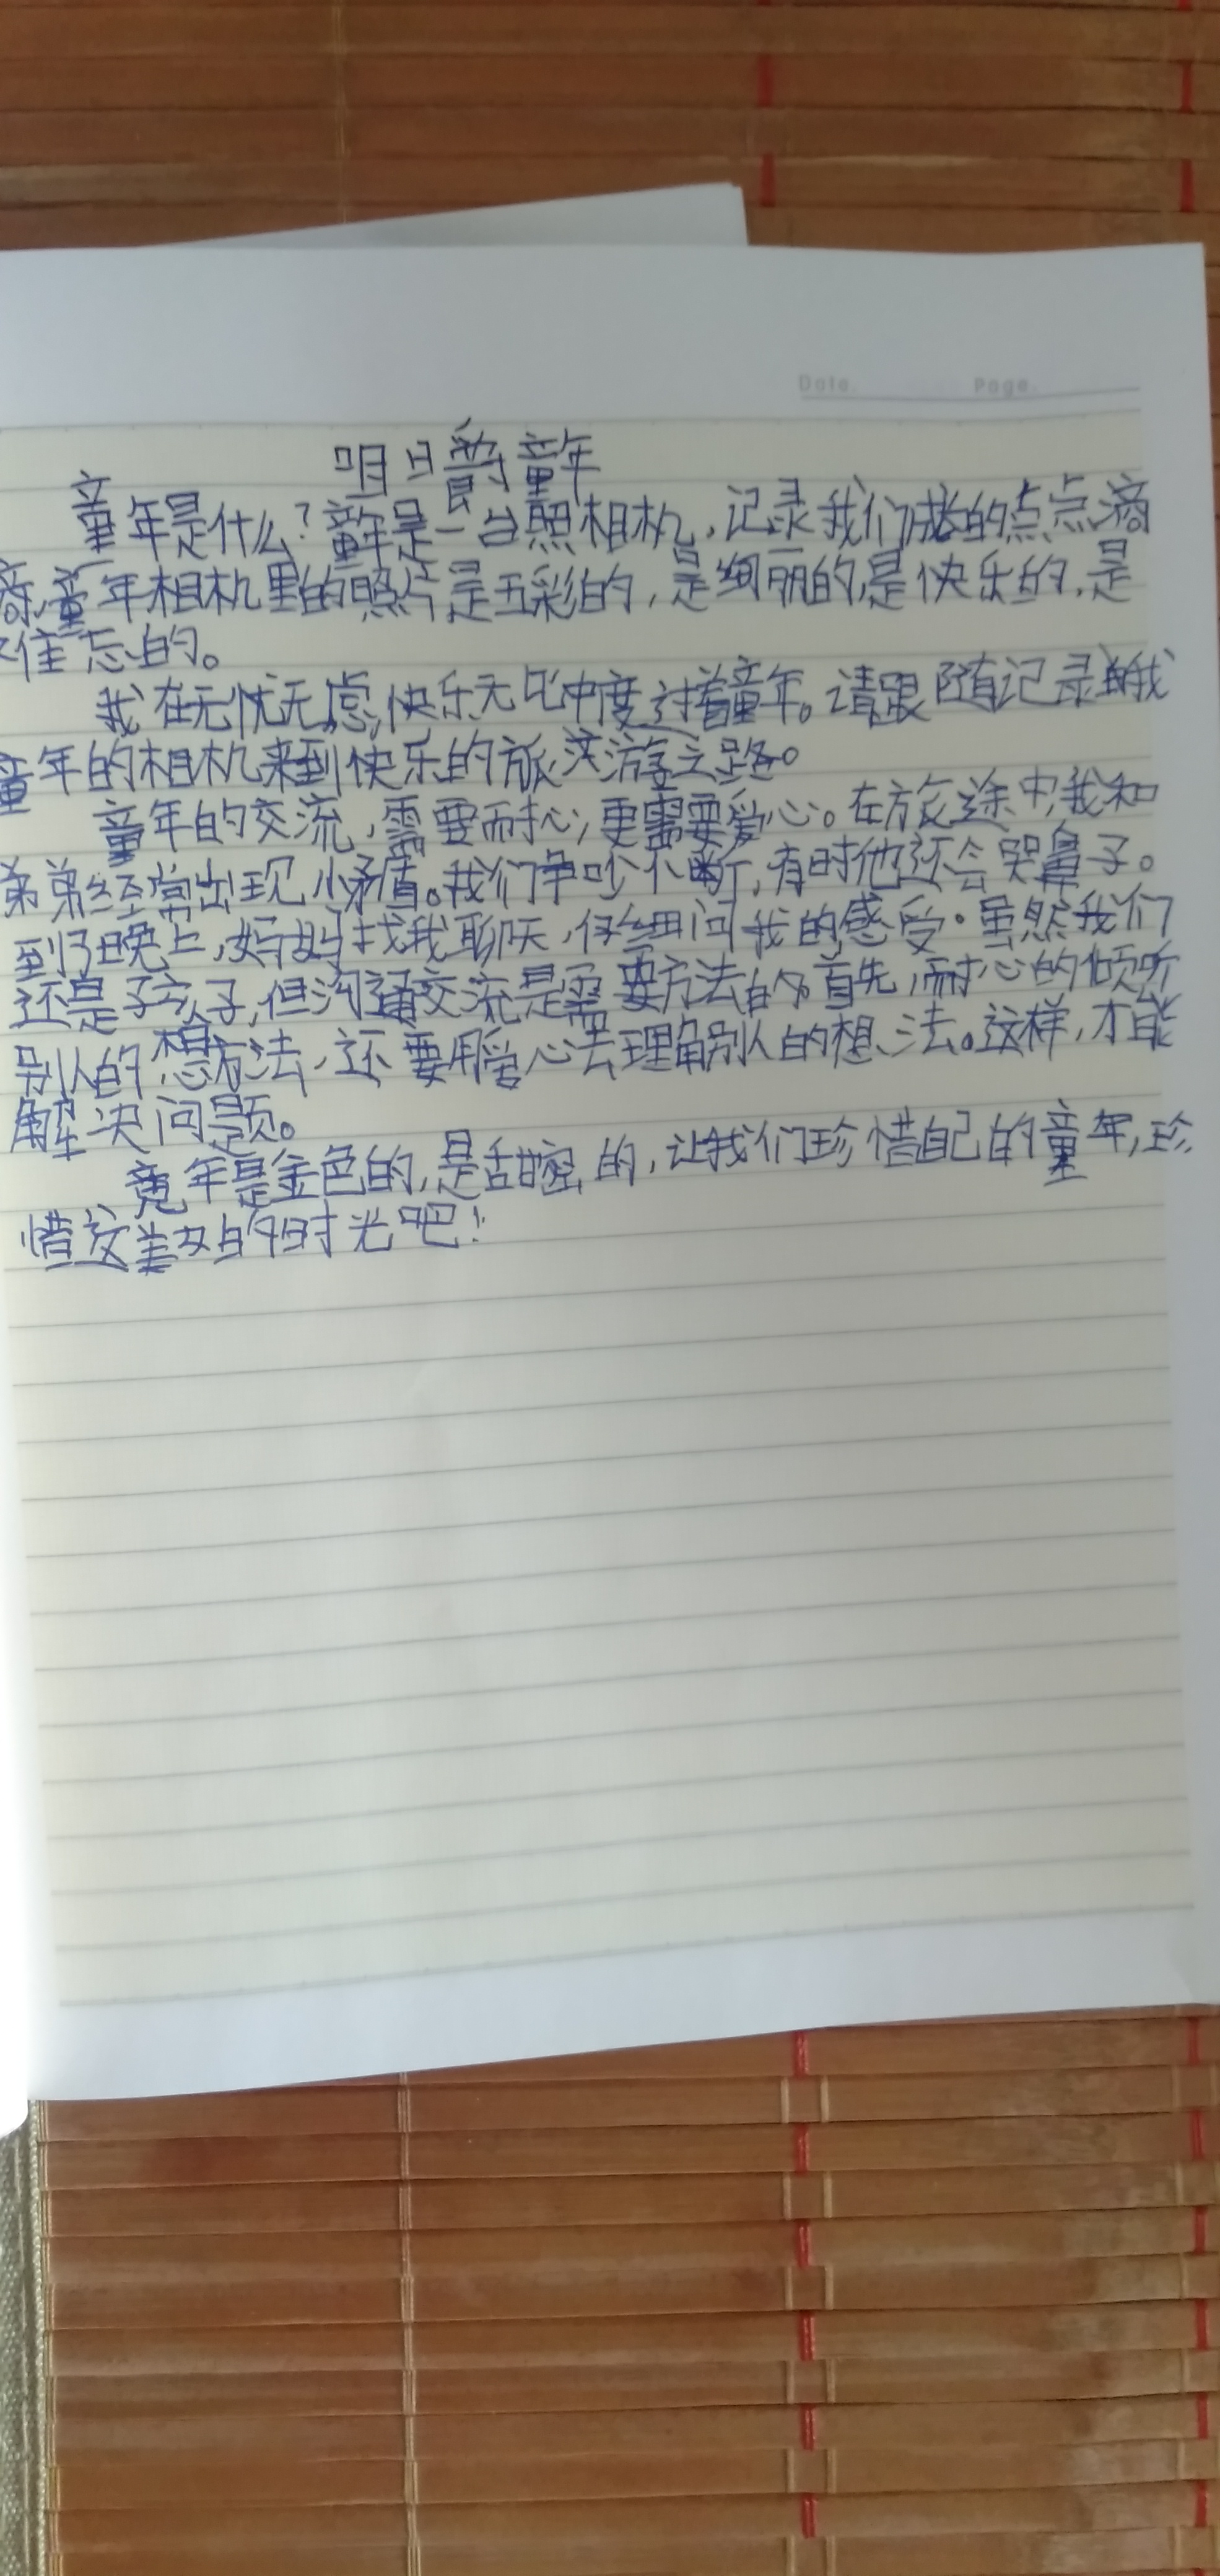 Date. Page.
明日爵童年
童年是什么?童年是一台照相机,记录我们成长的点点滴
滴,童年相机里的照片是五彩的,是绚丽的,是快乐的,是
忘的。
我在无忧无虑,快乐无比中度过着童年。请跟随记录我
童年的相机来到快乐的旅游之路。
童年的交流,需要耐心,更需要爱心。在旅途中,我和
弟弟经常出现小矛盾。我们争吵不断,有时他还会哭鼻子。
到了晚上,妈妈找我聊天,仔细问我的感受。虽然我们
还是孩子,但沟通交流是需要方法的。首先,耐心的倾听
别人的想法,还要用爱心去理解别人的想法。这样,才能
解决问题。
童年是金色的,是甜蜜的,让我们珍惜自己的童年,珍
惜这美好的时光吧!